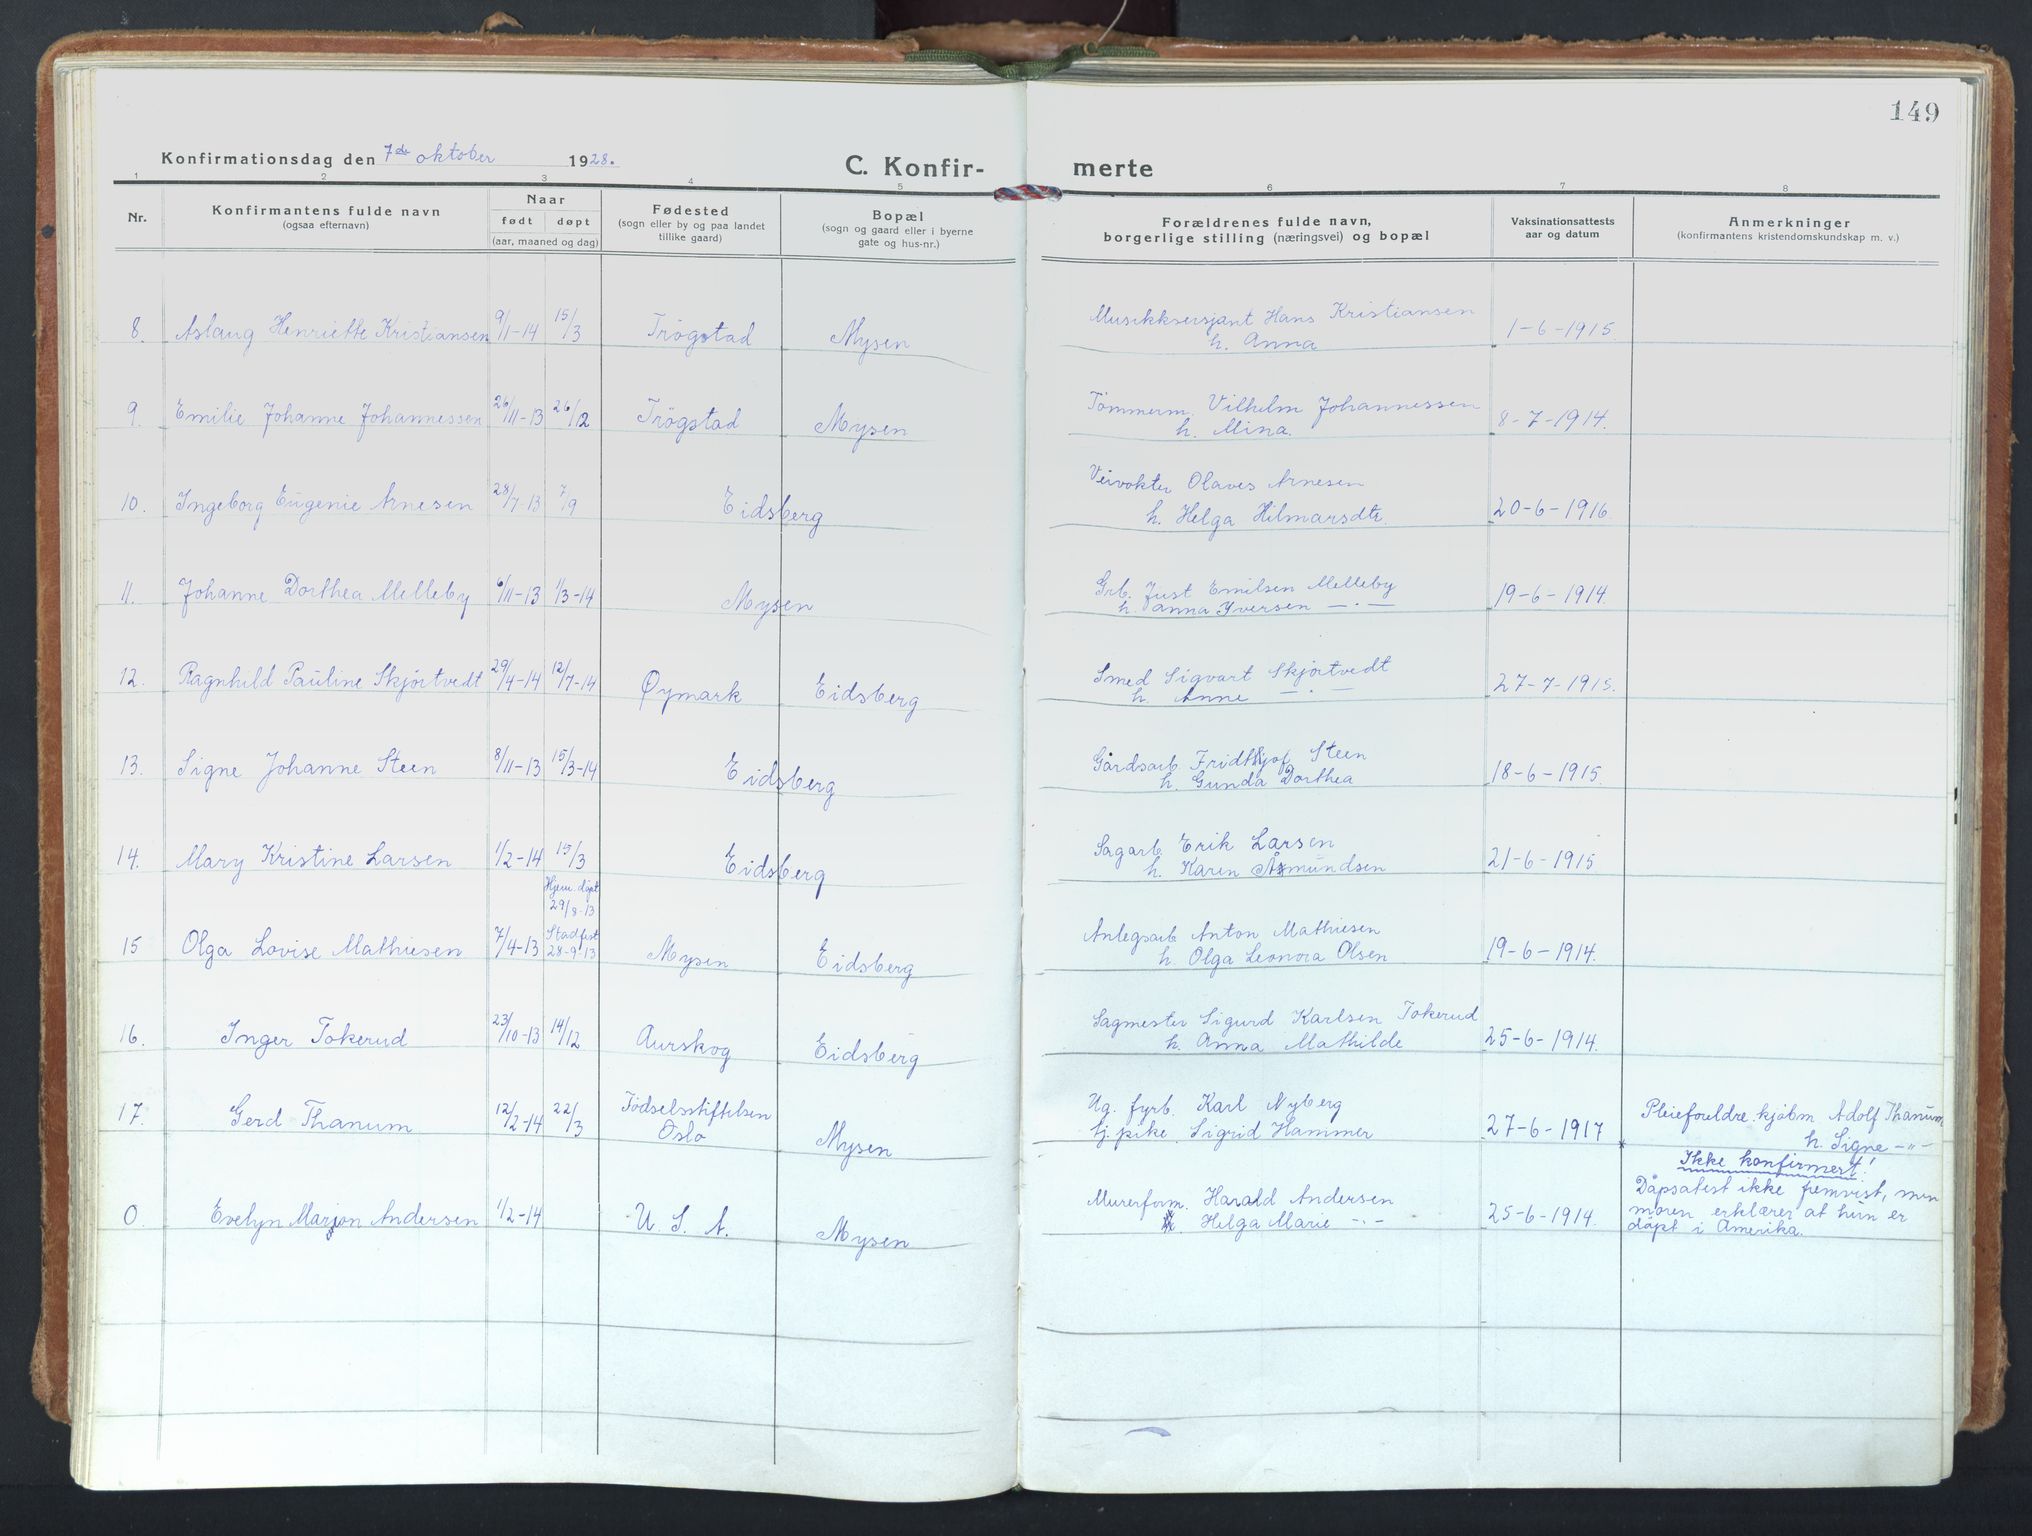 149
Konfirmationsdag den 7de oktober 1928.
C. Konfir- merte
1 2 3 4 5 6 7 8
Nr.
Konfirmantens fulde navn
(ogsaa efternavn)
Naar
født døpt
(aar, maaned og dag)
Fødested
(sogn eller by og paa landet
tillike gaard)
Bopæl
(sogn og gaard eller i byerne
gate og hus-nr.)
Forældrenes fulde navn,
borgerlige stilling (næringsvei) og bopæl
Vaksinationsattests
aar og datum
Anmerkninger
(konfirmantens kristendomskundskap m. v.)
8. Aslaug Henriette Kristiansen 9/1-14 15/3 Trögstad Mysen Musikksersjant Hans Kristiansen 1-6-1915.
h. Anna
9. Emilie Johanne Johannessen 26/11-13 26/12 Trögstad Mysen Tömmerm. Vilhelm Johannessen 8-7-1914.
h. Mina.
10. Ingeborg Eugenie Arnesen 28/7-13 7/9 Eidsberg Veivokter Olaves Arnesen 20-6-1916.
h. Helga Hilmarsdtr.
11. Johanne Dorthea Melleby 6/11-13 1/3-14 Mysen Grb. Just Emilsen Melleby 19-6-1914.
h. Anna Yversen — . —
12. Ragnhild Pauline Skjörtvedt 29/4-14 12/7-14 Øymark Eidsberg Smed Sigvart Skjörtvedt 27-7-1915.
h. Anne — . —
13. Signe Johanne Steen 8/11-13 15/3-14 Eidsberg Gårdsarb. Fridthjof Steen 18-6-1915.
h. Gunda Dorthea
14. Mary Kristine Larsen 1/2-14 15/3 Eidsberg Sagarb. Erik Larsen 21-6-1915
h. Karen Åsmundsen
Hjem. döpt
29/8-13
15 Olga Lovise Mathiesen 7/4-13 Stadfest
28-9-13 Mysen Eidsberg Anlegsarb. Anton Mathiesen 19-6-1914.
h. Olga Leonora Olsen
16. Inger Tokerud 23/10-13 14/12 Aurskog Eidsberg Sagmester Sigurd Karlsen Tokerud 25-6-1914.
h. Anna Mathilde
17. Gerd Thanum 12/2-14 22/3 Födselsstiftelsen
Oslo Mysen Ug. fyrb. Karl Nyberg 27-6-1917 Pleieforeldre. kjöbm Adolf Thanum
tj. pike. Sigrid Hammer h. Signe -"-
Ikke konfirmert!
0. Evelyn Marjon Andersen 1/2-14 U. S. A. Mysen Murerform. Harald Andersen 25-6-1914. Dåpsatest ikke fremvist, men
h. Helga Marie -.- moren erklærer at hun er
döpt i Amerika.